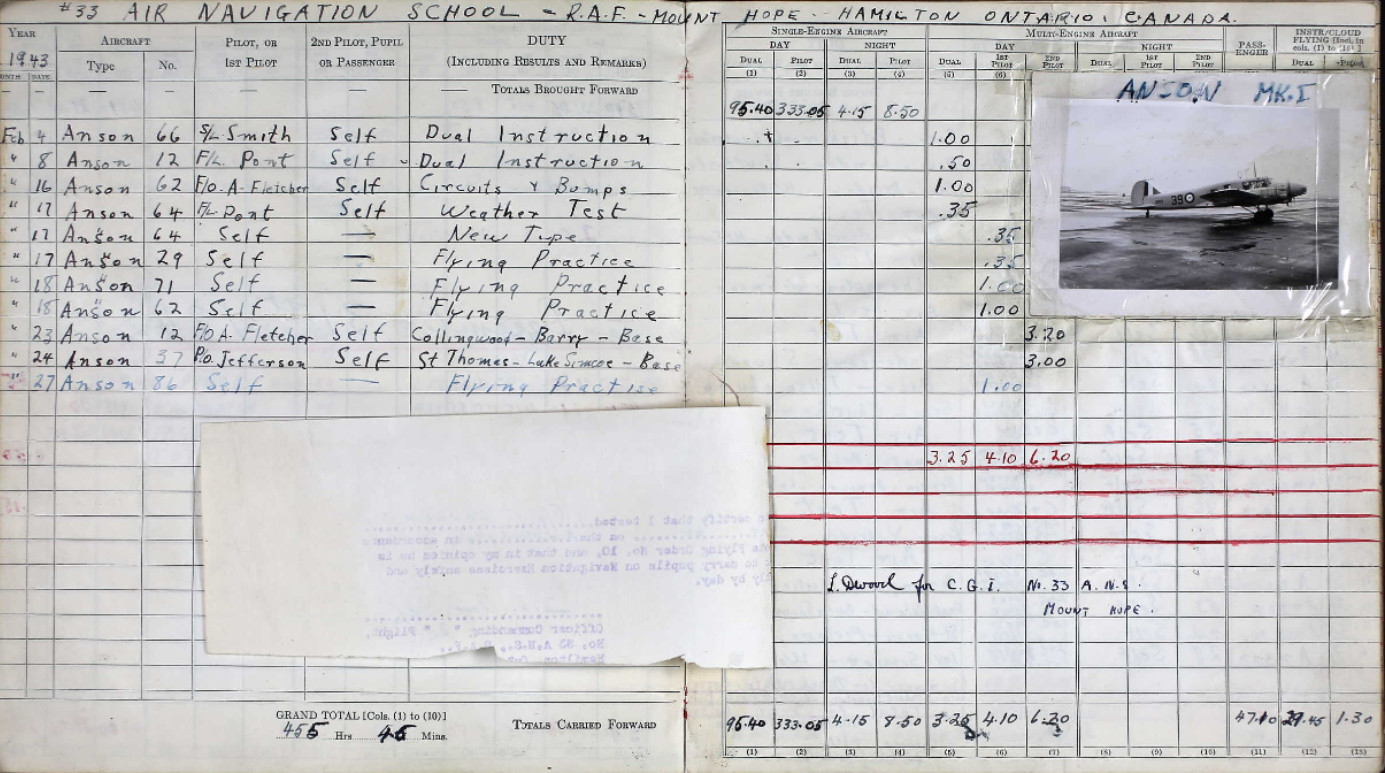 #33 AIR NAVIGATION SCHOOL - R.A.F. - MOUNT HOPE - HAMILTON ONTARIO. CANADA.
YEAR AIRCRAFT PILOT, OR 2ND PILOT, PUPIL DUTY SINGLE-ENGINE AIRCRAFT MULTI-ENGINE AIRCRAFT PASS- INSTR/CLOUD
1943 Type No. 1ST PILOT OR PASSENGER (INCLUDING RESULTS AND REMARKS) DAY NIGHT DAY NIGHT ENGER FLYING [Incl. in
MONTH DATE DUAL PILOT DUAL PILOT DUAL 1ST PILOT 2ND PILOT DUAL 1ST PILOT 2ND PILOT cols. (1) to (10)]
DUAL PILOT
(1) (2) (3) (4) (5) (6)
— — — — — — TOTALS BROUGHT FORWARD 95.40 333.05 4.15 8.50
ANSON MK.I
39
Feb 4 Anson 66 S/L Smith Self Dual Instruction 1.00
" 8 Anson 12 F/L. Pont Self Dual Instruction .50
" 16 Anson 62 F/O. A. Fletcher Self Circuits & Bumps 1.00
" 17 Anson 64 F/L. Pont Self Weather Test .35
" 17 Anson 64 Self — New Type .35
" 17 Anson 29 Self — Flying Practice .35
" 18 Anson 71 Self — Flying Practice 1.00
" 18 Anson 62 Self — Flying Practice 1.00
" 23 Anson 12 F/O A. Fletcher Self Collingwood - Barry - Base 3.20
" 24 Anson 37 P.O. Jefferson Self St Thomas - Lake Simcoe - Base 3.00
" 27 Anson 86 Self — Flying Practise 1.00
3.25 4.10 6.20
certify that I tested
on the in accordance
Flying Order No. 10, and that in my opinion he is
to carry pupils on Navigation Exercises safely and
by day.
Officer Commanding " " Flight,
No. 33 A.N.S., R.A.F.,
Hamilton, Ont
for C.G.I. No. 33 A.N.S.
MOUNT HOPE.
GRAND TOTAL [Cols. (1) to (10)]
455 Hrs 45 Mins.
TOTALS CARRIED FORWARD 95.40 333.05 4.15 8.50 3.25 4.10 6.20 47.10 29.45 1.30
(1) (2) (3) (4) (5) (6) (7) (8) (9) (10) (11) (12) (13)